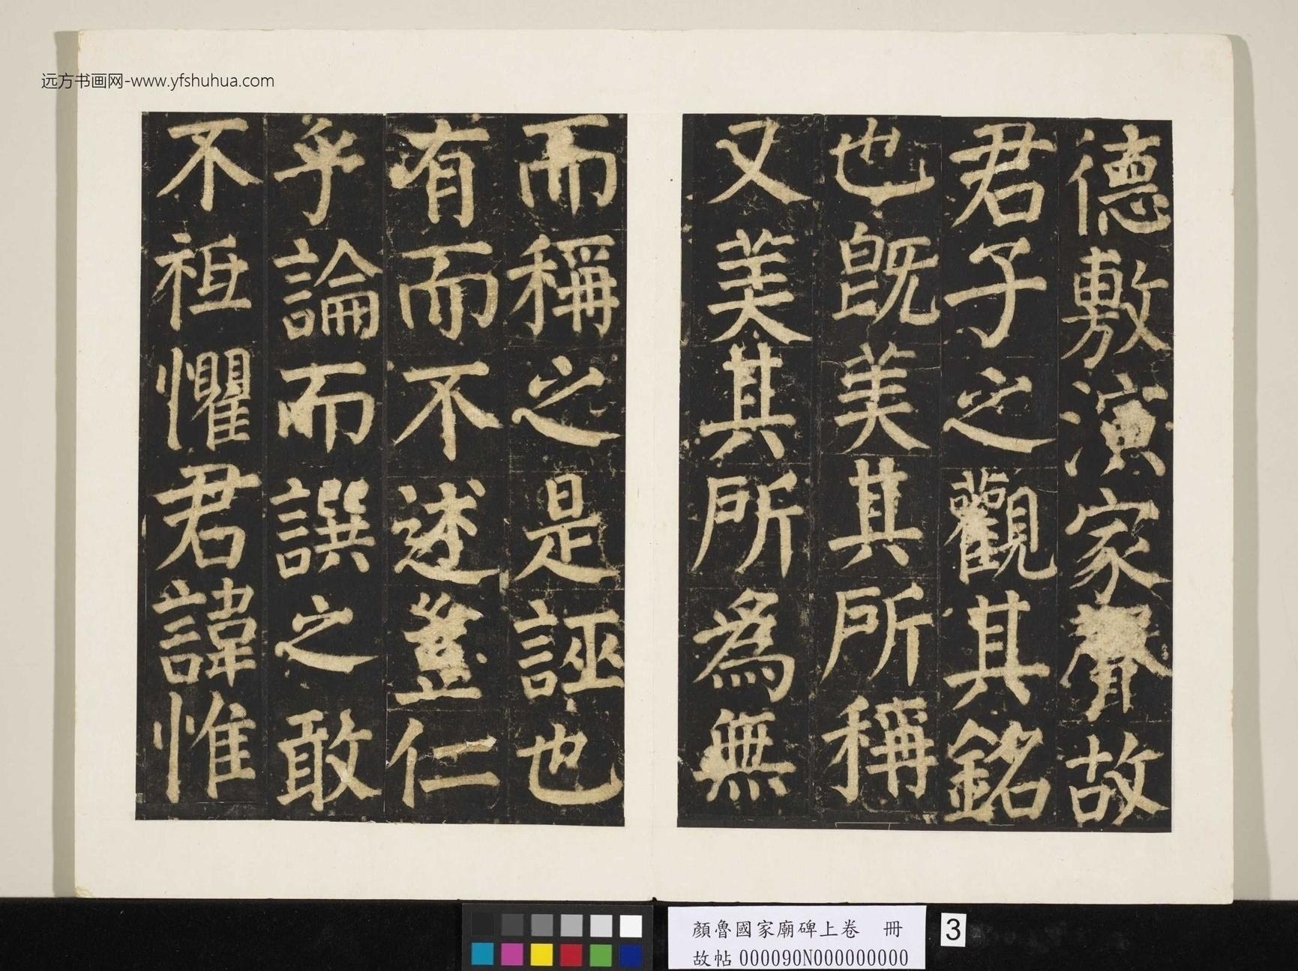 远方书画网-www.yfshuhua.com
德敷演家聲故
君子之觀其銘
也既美其所稱
又美其所為無
而稱之是誣也
有而不述豈仁
乎論而譔之敢
不祗懼君諱惟
顏魯國家廟碑上卷 冊
故帖000090N000000000
3